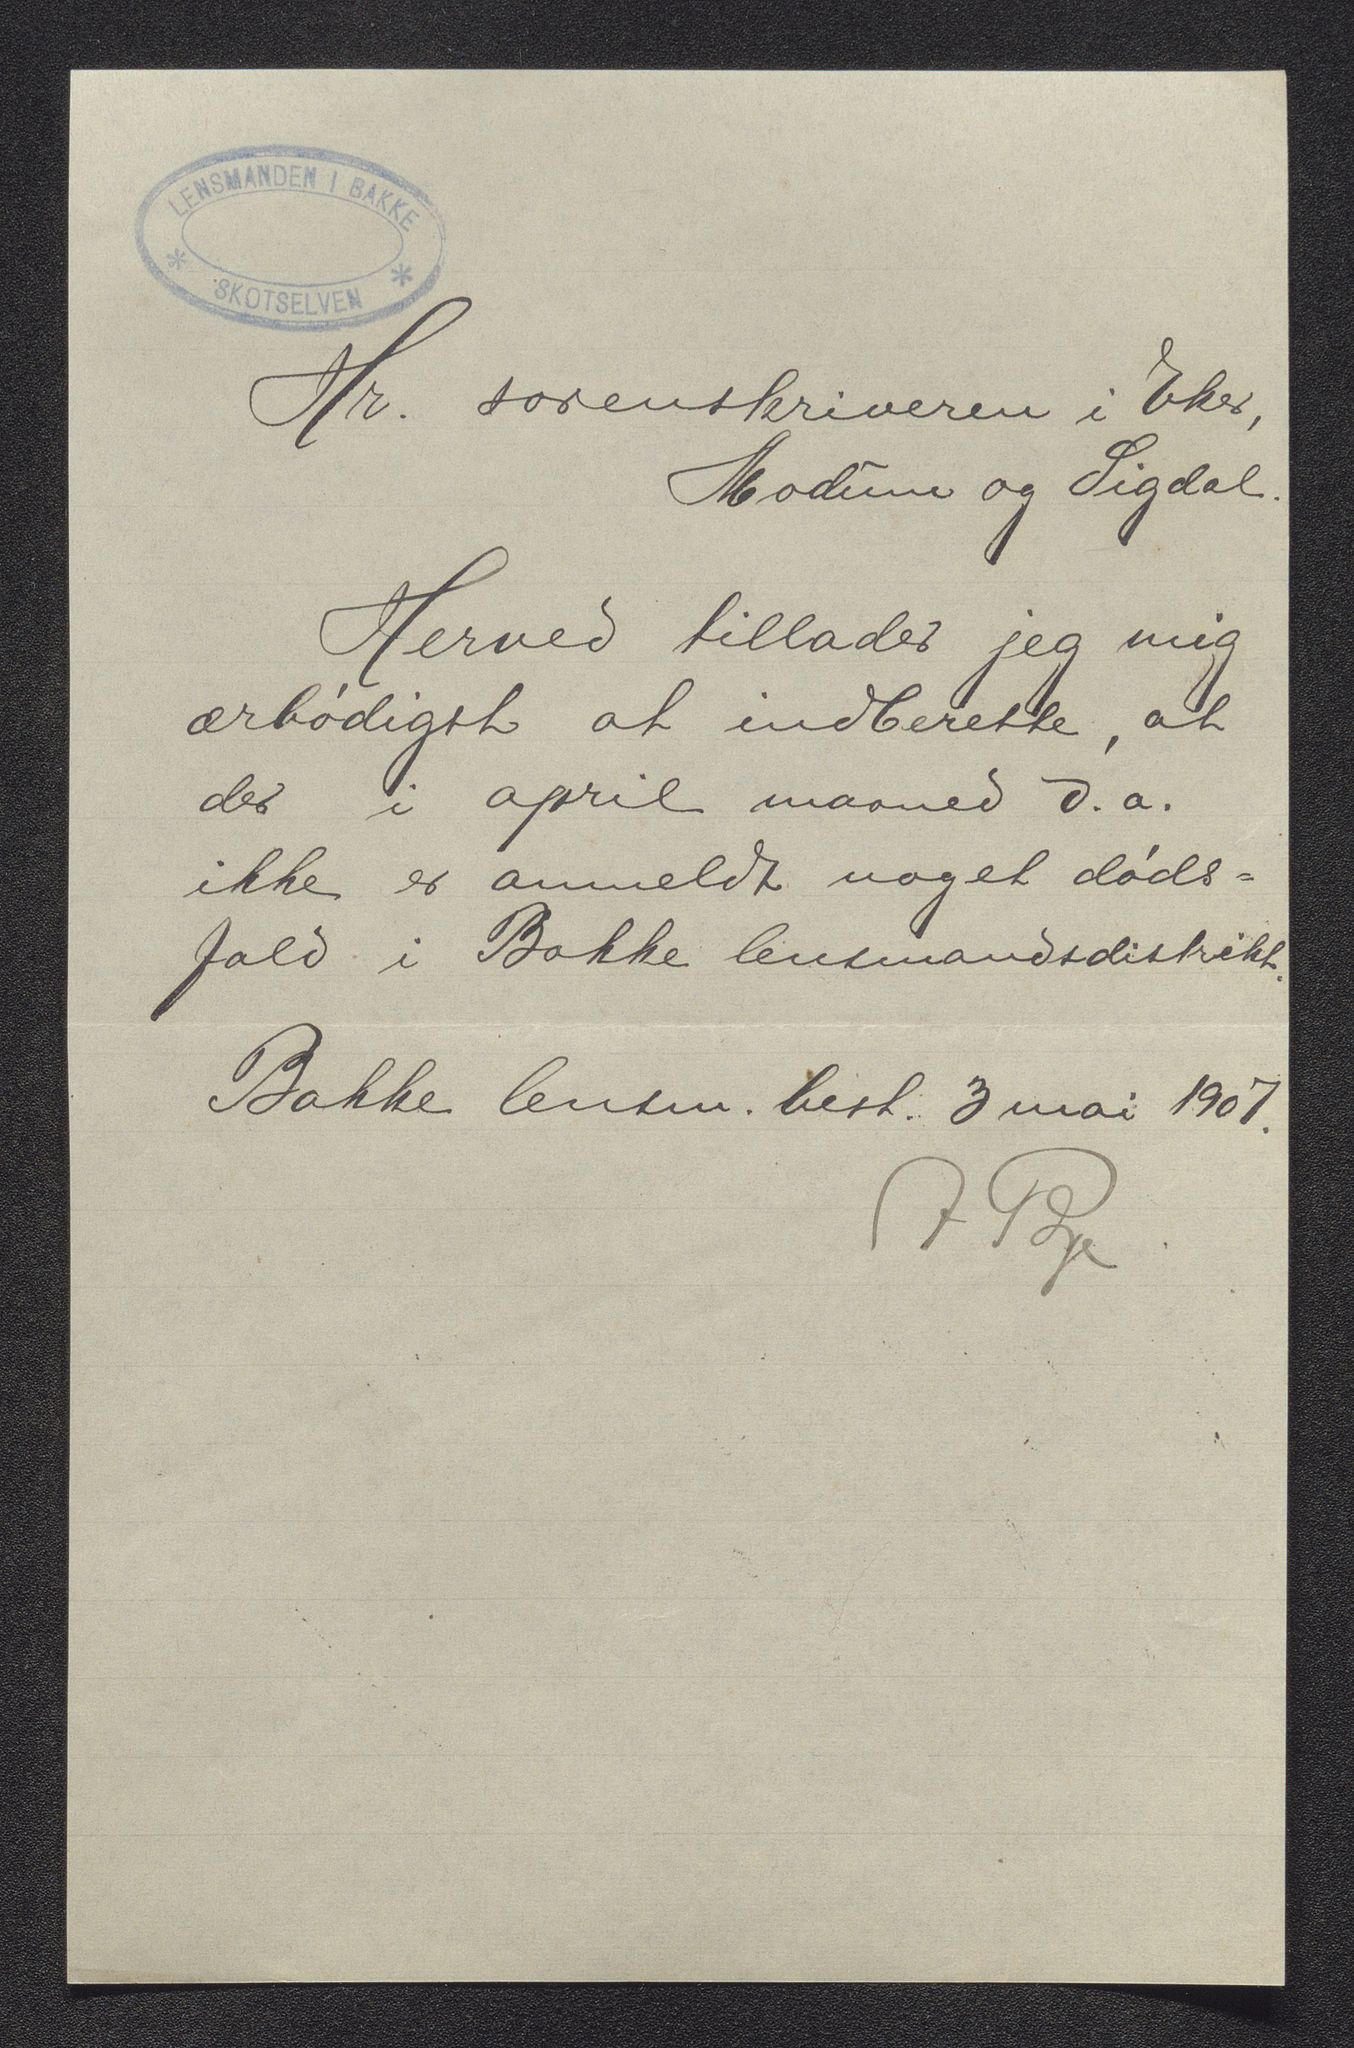 LENSMANDEN I BAKKE
* SKOTSELVEN *
Hr. sorenskriveren i Eker,
Modum og Sigdal.
Herved tillader jeg mig
ærbódigst at indberette, at
der i april maaned d. a.
ikke er anmeldt noget dóds=
fald i Bakke lensmandsdistrikt.
Bakke lensm. best. 3 mai 1907.
A Bye